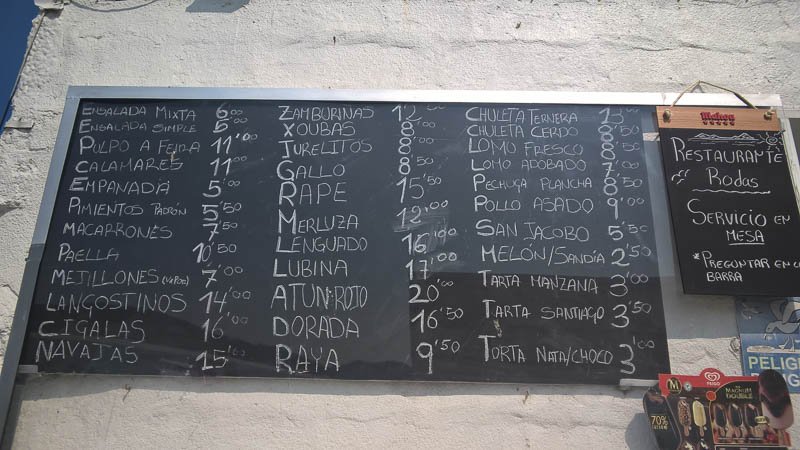 ENSALADA MIXTA 6'00
ENSALADA SIMPLE 6'00
PULPO A FEIRA 11'00
CALAMARES 11'00
EMPANADIA 5'00
PIMIENTOS PADRÓN 5'50
MACARRONES 7'00
PAELLA 10'50
MEJILLONES (VAPOR) 7'00
LANGOSTINOS 14'00
CIGALAS 16'00
NAVAJAS 15'00
ZAMBURIÑAS 12'00
XOUBAS 8'00
JURELITOS 8'00
GALLO 8'50
RAPE 15'50
MERLUZA 12'00
LENGUADO 16'00
LUBINA 17'00
ATUN ROJO 20'00
DORADA 16'50
RAYA 9'50
CHULETA TERNERA 13'00
CHULETA CERDO 8'50
LOMO FRESCO 8'50
LOMO ADOBADO 7'50
PECHUGA PLANCHA 8'50
POLLO ASADO 9'00
SAN JACOBO 5'50
MELÓN/SANDÍA 2'50
TARTA MANZANA 3'00
TARTA SANTIAGO 3'50
TORTA NATA/CHOCO 3'00
Mahou
RESTAURANTE
Rodas
SERVICIO EN
MESA
*PREGUNTAR EN
BARRA
PELIG
FRIGO
MAGNUM
DOUBLE
70%